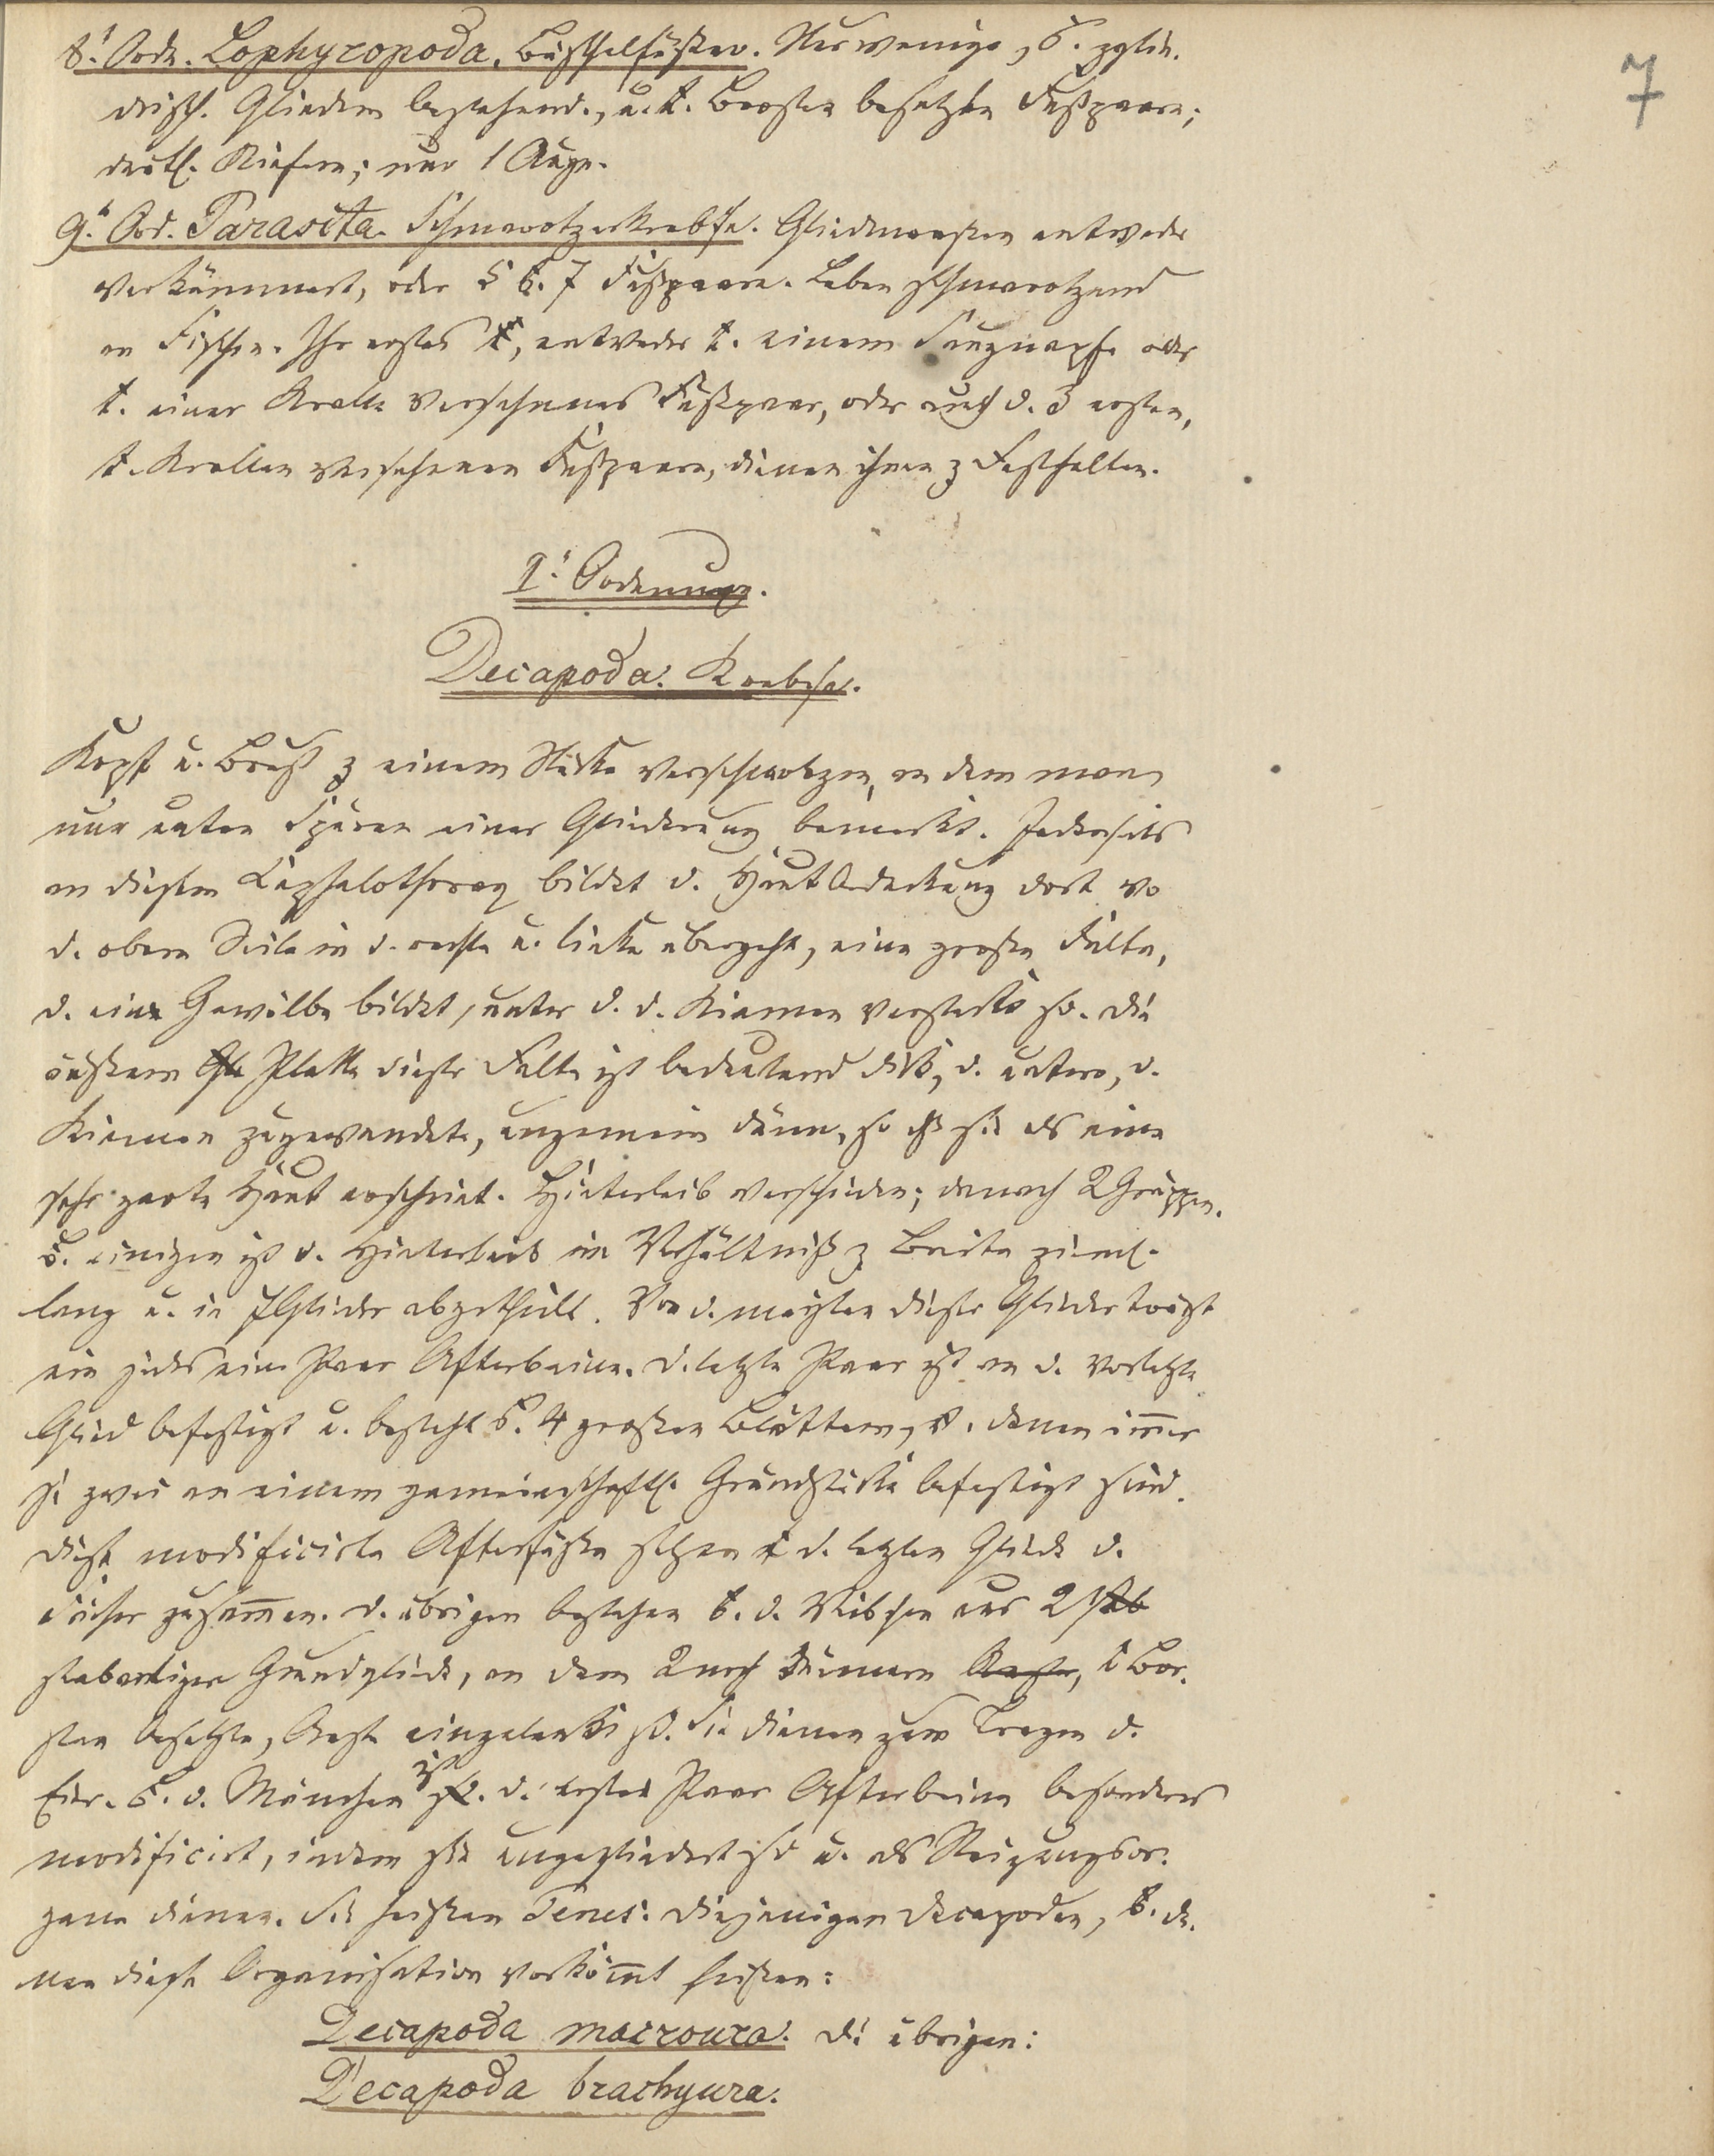 7
8.' Ordn. Lophyropoda. Büschelfüßer. Nur wenige, v. zylin-
drisch. Gliedern bestehende, u. t. Borsten besetzte Fußpaare;
deutl. Kiefern; nur 1 Auge.
9.' Ord. Parasita. Schmarotzerkrebse. Gliedmaaßen entweder
verkümmert, oder 5 b. 7 Fußpaare. Leben schmarotzend
an Fischen. Ihr erstes, entweder t. einem Saugnapfe oder
t. einer Kralle versehenes Fußpaar, oder auch d. 3 ersten,
t. Krallen versehenen Fußpaare, dienen ihnen z Festhalten.
1.' Ordnung.
Decapoda. Krebse.
Kopf u. Brust z einem Stücke verschmolzen, an dem man
nur unten Spuren einer Gliederung bemerkt. Jederseits
an diesem Cephalothorax bildet d. Hautbedeckung dort wo
d. obere Seite in d. rechte u. linke übergeht, eine große Falte,
d. eine Gewölbe bildet, unter d. d. Kiemen versteckt sd. Die
äußere Platte dieser Falte ist bedeutend dick, d. untere, d.
Kiemen zugewandete, ungemein dünn, so daß sie als eine
sehr zarte Haut erscheint. Hinterleib verschieden; danach 2 Gruppen.
B. einigen ist d. Hinterleib im Verhältniß z Breite ziemlich
lang u. in 7 Glieder abgetheilt. Von d. meisten dieser Glieder trägt
ein jedes ein Paar Afterbeine. D. letzte Paar ist an d. vorletzte
Glied befestigt u. besteht 4 großen Blättern, v. denen immer
je zwei an einem gemeinschaftl. Grundstücke befestigt sind.
Diese modificirte Afterfüße setzen t d. letzten Glied d.
Fächer zusammen. D. übrigen bestehen b. d. Weibchen aus
stabartigen Grundgliede, an dem 2 noch dünnere, t Bor-
sten besetzte, Aeste eingelenkt sd. Sie dienen zum Tragen d.
Eier. B. d. Männchen ist d. erstes Paar Afterbeine besonders
modificirt, indem sie ungegliedert sd u. als Reizungsor-
gane dienen. Sie heißen Penes. Diejenigen Decapoden, b. de-
nen diese Organisation vorkömmt heißen:
Decapoda macroura. Di übrigen:
Decapoda brachyura.